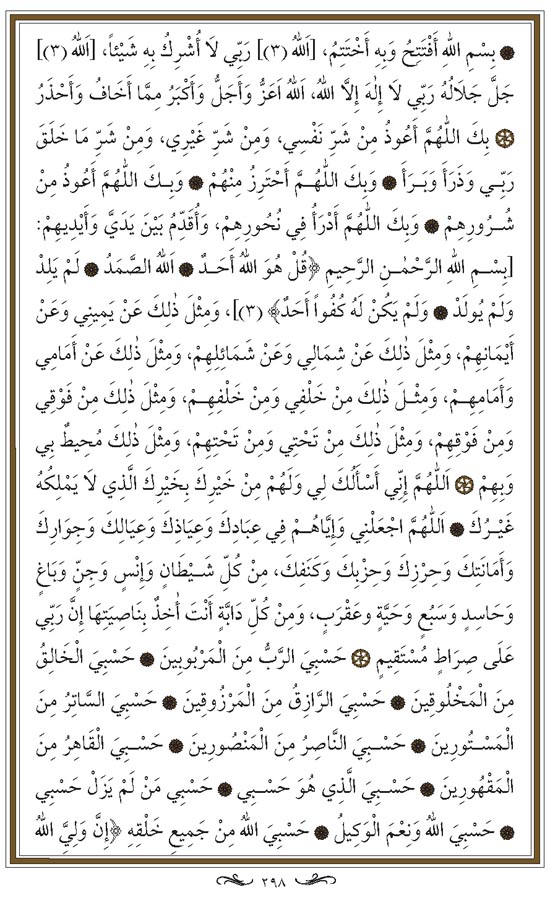 بِسْمِ اللهِ أَفْتَتِحُ وَبِهِ أَخْتَتِمُ، [اَللهُ (٣)] رَبِّي لَا أُشْرِكُ بِهِ شَيْئاً، [اَللهُ (٣)]
جَلَّ جَلَالُهُ رَبِّي لَا إِلٰهَ إِلَّا اللهُ، اَللهُ اَعَزُّ وَأَجَلُّ وَأَكْبَرُ مِمَّا أَخَافُ وَأَحْذَرُ
بِكَ اللّٰهُمَّ أَعُوذُ مِنْ شَرِّ نَفْسِي، وَمِنْ شَرِّ غَيْرِي، وَمِنْ شَرِّ مَا خَلَقَ
رَبِّي وَذَرَأَ وَبَرَأَ وَبِكَ اللّٰهُمَّ أَحْتَرِزُ مِنْهُمْ وَبِكَ اللّٰهُمَّ أَعُوذُ مِنْ
شُرُورِهِمْ وَبِكَ اللّٰهُمَّ أَدْرَأُ فِي نُحُورِهِمْ، وَأُقَدِّمُ بَيْنَ يَدَيَّ وَأَيْدِيهِمْ:
[بِسْمِ اللهِ الرَّحْمٰنِ الرَّحِيمِ ﴿قُلْ هُوَ اللهُ أَحَدٌ اَللهُ الصَّمَدُ لَمْ يَلِدْ
وَلَمْ يُولَدْ وَلَمْ يَكُنْ لَهُ كُفُواً أَحَدٌ﴾ (٣)]، وَمِثْلَ ذٰلِكَ عَنْ يَمِينِي وَعَنْ
أَيْمَانِهِمْ، وَمِثْلَ ذٰلِكَ عَنْ شِمَالِي وَعَنْ شَمَائِلِهِمْ، وَمِثْلَ ذٰلِكَ عَنْ أَمَامِي
وَأَمَامِهِمْ، وَمِثْلَ ذٰلِكَ مِنْ خَلْفِي وَمِنْ خَلْفِهِمْ، وَمِثْلَ ذٰلِكَ مِنْ فَوْقِي
وَمِنْ فَوْقِهِمْ، وَمِثْلَ ذٰلِكَ مِنْ تَحْتِي وَمِنْ تَحْتِهِمْ، وَمِثْلَ ذٰلِكَ مُحِيطٌ بِي
وَبِهِمْ اَللّٰهُمَّ إِنِّي أَسْأَلُكَ لِي وَلَهُمْ مِنْ خَيْرِكَ بِخَيْرِكَ الَّذِي لَا يَمْلِكُهُ
غَيْرُكَ اَللّٰهُمَّ اجْعَلْنِي وَإِيَّاهُمْ فِي عِبَادِكَ وَعِيَاذِكَ وَعِيَالِكَ وَجِوَارِكَ
وَأَمَانَتِكَ وَحِرْزِكَ وَحِزْبِكَ وَكَنَفِكَ، مِنْ كُلِّ شَيْطَانٍ وَإِنْسٍ وَجِنٍّ وَبَاغٍ
وَحَاسِدٍ وَسَبُعٍ وَحَيَّةٍ وَعَقْرَبٍ، وَمِنْ كُلِّ دَابَّةٍ أَنْتَ أٰخِذٌ بِنَاصِيَتِهَا إِنَّ رَبِّي
عَلَى صِرَاطٍ مُسْتَقِيمٍ حَسْبِيَ الرَّبُّ مِنَ الْمَرْبُوبِينَ حَسْبِيَ الْخَالِقُ
مِنَ الْمَخْلُوقِينَ حَسْبِيَ الرَّازِقُ مِنَ الْمَرْزُوقِينَ حَسْبِيَ السَّاتِرُ مِنَ
الْمَسْتُورِينَ حَسْبِيَ النَّاصِرُ مِنَ الْمَنْصُورِينَ حَسْبِيَ الْقَاهِرُ مِنَ
الْمَقْهُورِينَ حَسْبِيَ الَّذِي هُوَ حَسْبِي حَسْبِي مَنْ لَمْ يَزَلْ حَسْبِي
حَسْبِيَ اللهُ وَنِعْمَ الْوَكِيلُ حَسْبِيَ اللهُ مِنْ جَمِيعِ خَلْقِهِ ﴿إِنَّ وَلِيَّ اللهُ
٢٩٨